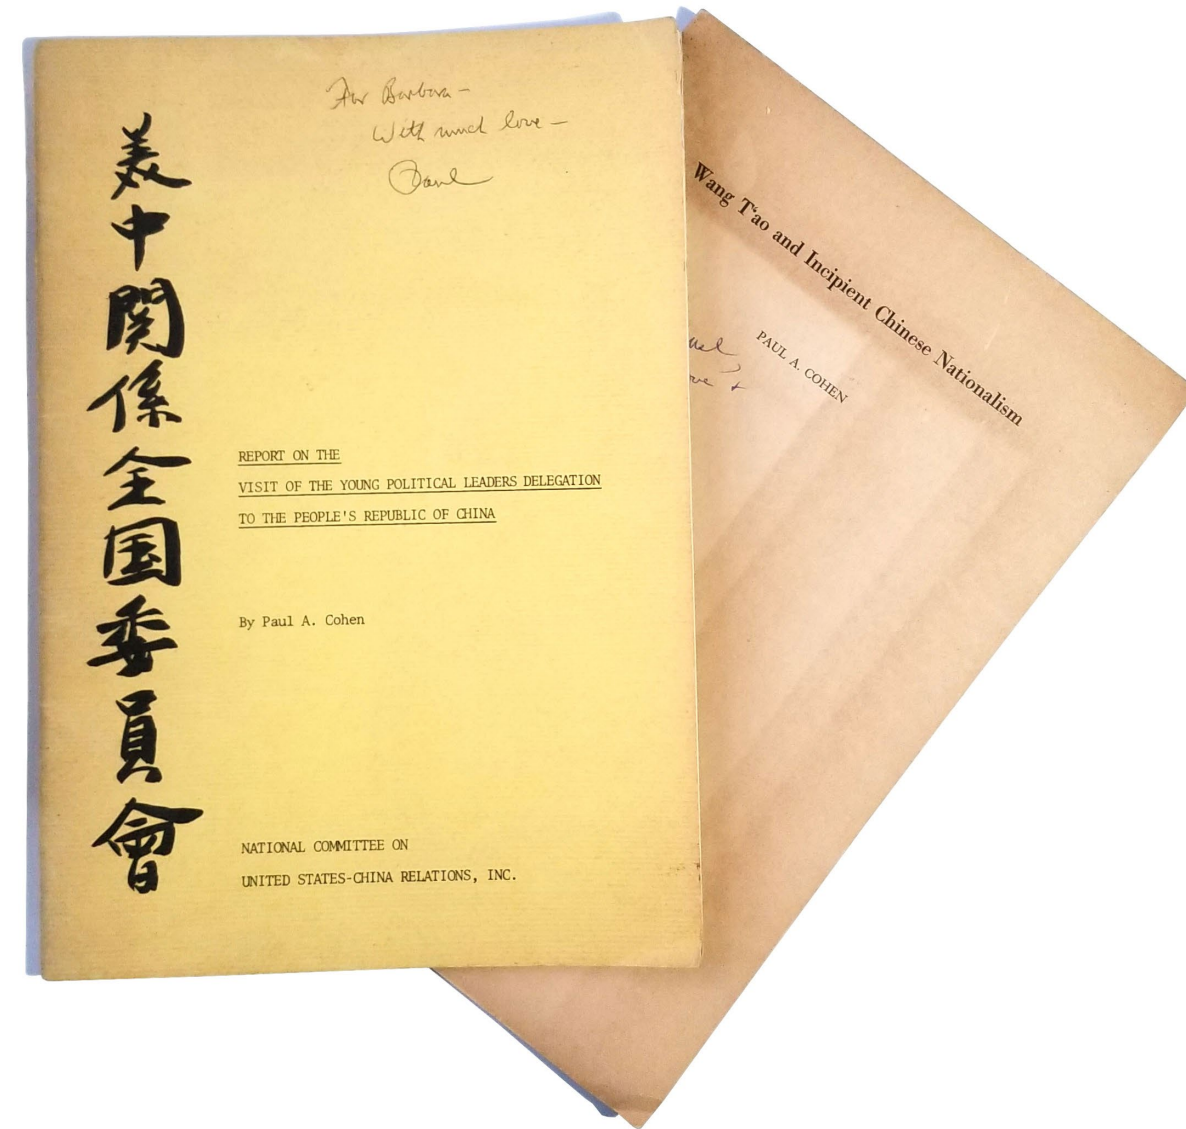 For Barbara —
With much love —
Paul
美中関係全国委員會
REPORT ON THE
VISIT OF THE YOUNG POLITICAL LEADERS DELEGATION
TO THE PEOPLE'S REPUBLIC OF CHINA
By Paul A. Cohen
NATIONAL COMMITTEE ON
UNITED STATES-CHINA RELATIONS, INC.
Wang T‘ao and Incipient Chinese Nationalism
PAUL A. COHEN